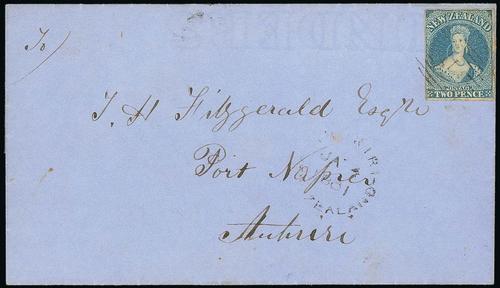 To
NEW ZEALAND
POSTAGE
TWO PENCE
J. H. Fitzgerald Esqre
Port Napier
Ahuriri
ZEALAND